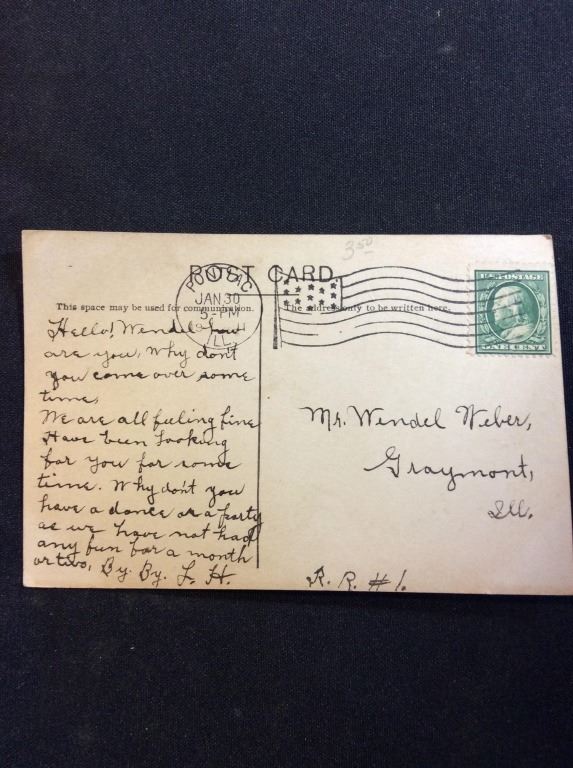 3.50
POST CARD
PONTIAC
JAN 30
5-PM
ILL.
U.S. POSTAGE
ONE CENT
This space may be used for communication.
The address only to be written here.
Hello! Wendel how
are you, why don't
you come over some
time,
We are all feeling fine
Have been looking
for you for some
time. Why don't you
have a dance or a party
as we have not had
any fun for a month
or two, By. By. L. H.
Mr. Wendel Weber,
Graymont,
Ill.
R. R. #1.